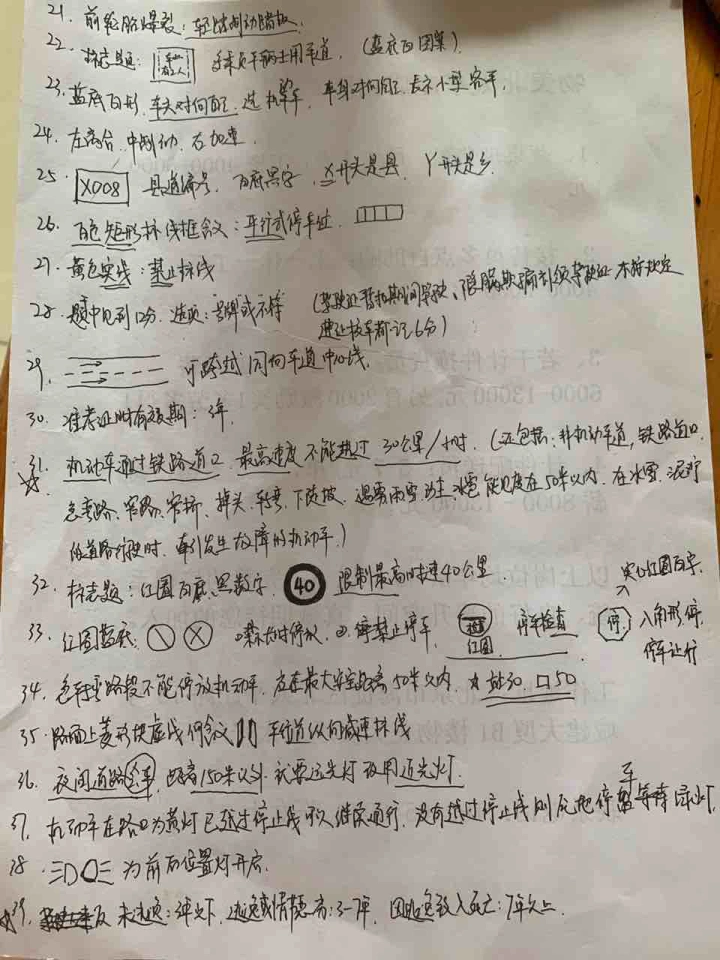 21. 前轮胎爆裂：轻踩制动踏板.
22. 标志题： 多乘员车辆专用车道. (蓝底白图案).
23. 蓝底白形, 车头对向自己, 是机动车, 车身对向自己 表示小型客车.
24. 左离合. 中制动. 右加速.
25. X008 县道编号. 白底黑字. X开头是县. Y开头是乡.
26. 白色矩形标线框含义：平行式停车位.
27. 黄色实线：禁止标线
28. 题中见到12分. 选项：号牌或不符 (驾驶证暂扣期间驾驶、隐瞒欺骗补领驾驶证 不按规定
避让校车都记6分)
29. 可跨越同向车道中心线.
30. 准考证明有效期：3年.
31. 机动车通过铁路道口 最高速度不能超过30公里/小时. (还包括：非机动车道, 铁路道口
急弯路、窄路、窄桥、掉头、转弯、下陡坡. 遇雾雨雪沙尘冰雹能见度在50米以内. 在冰雪、泥泞
的道路行驶时. 牵引发生故障的机动车.)
32. 标志题：红圆白底黑数字. 40 限制最高时速40公里
33. 红圆蓝底. ①禁长时停放. ②停禁止停车. 红圆 停车检查 停 八角形停. 实心红圆白字.
停车让行
34. 急弯路段不能停放机动车. 应在最大安全距离50米以内. 站30 口50
35. 路面上菱形块虚线何含义 车行道纵向减速标线
36. 夜间道路会车 距离150米以外 就要远光灯改用近光灯.
37. 机动车在路口为黄灯已越过停止线可以继续通行. 没有越过停止线则应把停车等待绿灯.
38. 为前后位置灯开启.
39. 未逃逸：3年以下. 逃逸或情节恶劣：3-7年. 因逃逸致人死亡：7年以上.